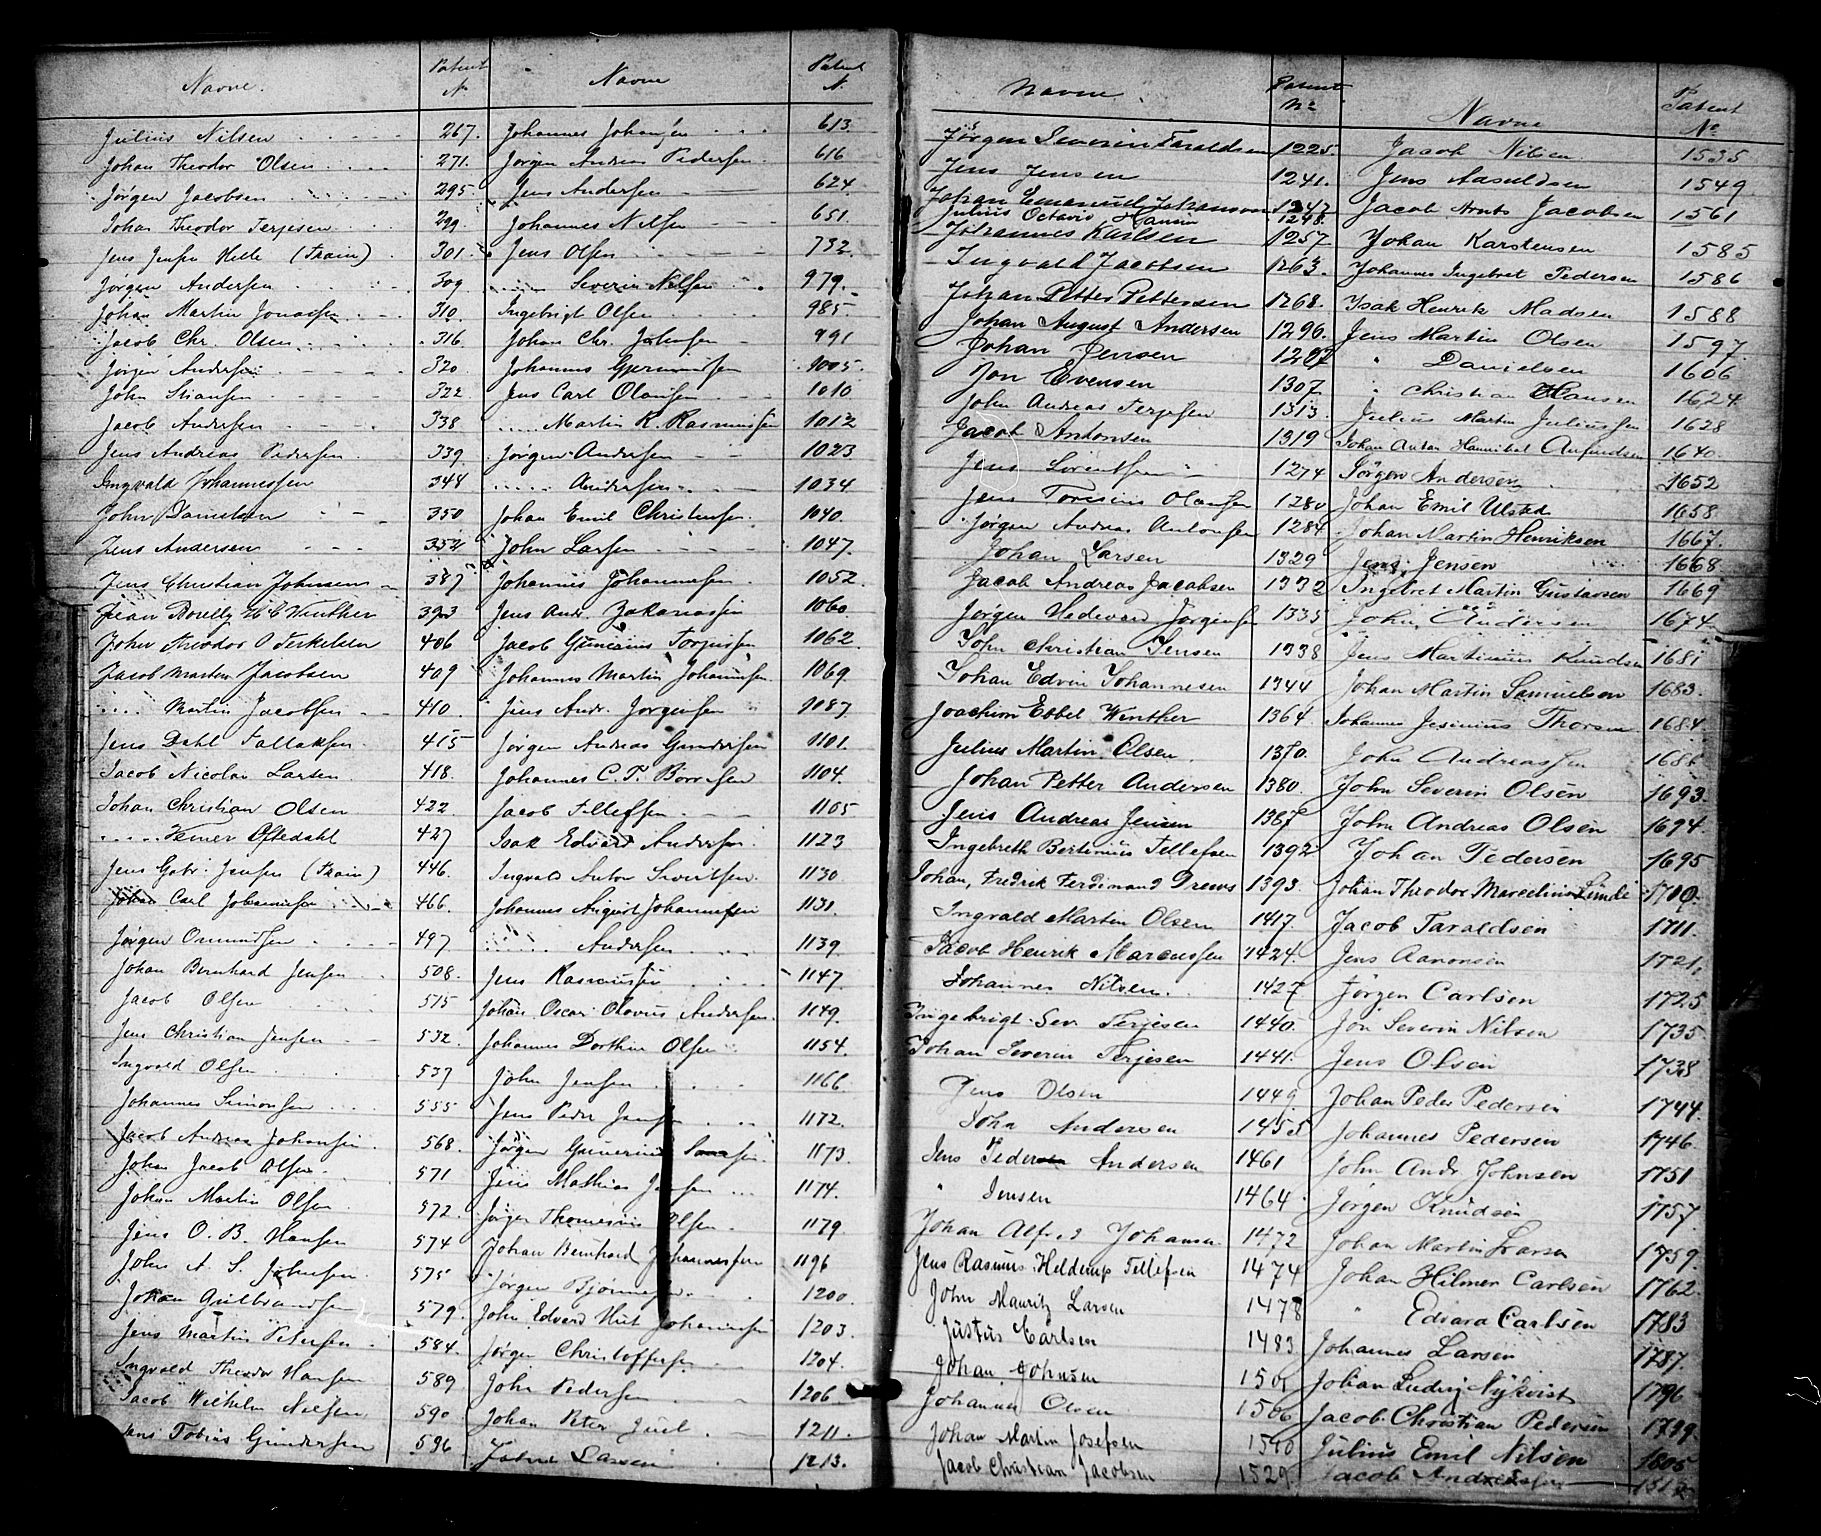 Navne. Patent N.
Julius Nilsen 267.
Johan Theodor Olsen 271.
Jørgen Jacobsen 295.
Johan Theodor Terjesen 299.
Jens Jensen Helle (Train) 301.
Jørgen Andersen 309
Johan Martin Jonassen 310.
Jacob Chr. Olsen 316.
Jørgen Andersen 320.
John Stiansen 322
Jacob Andersen 338
Jens Andreas Pedersen 339
Ingvald Johannessen 348
John Danielsen 350
Jens Andersen 352
Jens Christian Johnsen 387
Jean Borelly H C Winther 393
John Theodor O Terkelsen 406
Jacob Martin Jacobsen 409
" Martin Jacobsen 410
Jens Dahl Tallaksen 415
Jacob Nicolai Larsen 418.
Johan Christian Olsen 422
" Werner Oftedahl 427
Jens Gabr. Jensen (Train) 446.
Johan Carl Johannesen 466.
Jørgen Osmundsen 497
Johan Bernhard Jensen 508.
Jacob Olsen 515
Jens Christian Jensen 532.
Ingvald Olsen 537
Johannes Simonsen 555
Jacob Andreas Johansen 568.
Johan Jacob Olsen 571
Johan Martin Olsen 572.
Jens O. B. Hansen 574
John A. S. Johnsen 575
Johan Gulbrandsen 579.
Jens Martin Petersen 584.
Ingvald Theodor Hansen 589
Jacob Wilhelm Nielsen 590
Jens Tobias Gundersen 596
Navne Patent N.
Johannes Johansen 613.
Jørgen Andreas Pedersen 616
Jens Andersen 624.
Johannes Nilsen 651.
Jens Olsen 732.
" Severin Nilsen 979.
Ingebrigt Olsen 985
Johan Chr. Johnsen 991
Johannes Gurinusen 1005.
Jens Carl Olausen 1010
" Martin R. Rasmussen 1012
Jørgen Andersen 1023
" Andersen 1034
Johan Emil Christensen 1040.
John Larsen 1047.
Johannes Johannesen 1052.
Jens Andr. Zakariassen 1060
Jacob Gunerius Torjussen 1062.
Johannes Martin Johannesen 1069
Jens Andr. Jørgensen 1087
Jørgen Andreas Gundersen 1101.
Johannes C. T. Børresen 1104.
Jacob Tellefsen 1105
Isak Edvard Andersen 1123
Ingvald Anton Sivertsen 1130
Johannes August Johannesen 1131.
" Andersen 1139
Jens Rasmussen 1147
Johan Oscar Olavus Andersen 1149.
Johannes Dorthin Olsen 1154.
John Jensen 1166
Jens Peder Jansen 1172.
Jørgen Gunerius 1173.
Jens Mathias 1174.
Jørgen Thomesius Olsen 1179
Johan Bernhard Johannessen 1196
Jørgen Bjønnesen 1200.
John Edvard Hiet Johannesen 1203.
Jørgen Christoffersen 1204.
John Pedersen 1206.
Johan Peter Juel 1211.
Johan Larsen 1213.
Navne Patent No
Jørgen Severin Taraldsen 1225.
Jens Jensen 1241.
Johan Emanuel Johanson 1247
Julius Octavis Hansen 1248.
Johannes Karlsen 1257.
Ingvald Jacobsen 1263.
Johan Petter Pettersen 1268.
Johan August Andersen 1296.
Johan Jensen 1297
Jon Evensen 1307.
John Andreas Terjesen 1313.
Jacob Antonsen 1319
Jens Lorentsen 1274
Jens Toresius Olausen 1280
Jørgen Andreas Antonsen 1284.
Johan Larsen 1329
Jacob Andreas Jacobsen 1332
Jørgen Hedevard Jørgensen 1335
John Christian Jensen 1338
Johan Edvin Johannesen 1344
Joachim Ebbel Winther 1364
Julius Martin Olsen 1370.
Johan Petter Andersen 1380.
Jens Andreas Jensen 1387
Ingebreth Bertinius Tellefsen 1392
Johan, Fredrik Ferdinand Drews 1393.
Ingvald Martin Olsen 1417.
Jacob Henrik Marcussen 1424.
Johannes Nilsen 1427
Ingebrigt Sev. Terjesen 1440.
Johan Severin Terjesen 1441.
Jens Olsen 1449.
John Andersen 1455
Jens Pedersen Andersen 1461
" Jensen 1464
Johan Alfred Johansen 1472
Jens Rasmus Heldemp Tellefsen 1474
John Mauritz Larsen 1478
Justus Carlsen 1483
Johan Johnsen 1501
Johannes Olsen 1506
Johan Martin Josefsen 1510
Jacob Christian Jacobsen 1529.
Navne Patent No
Jacob Nilsen 1535
Jens Aasuldsen 1549
Jacob Arnts Jacobsen 1561
Johan Karstensen 1585
Johannes Ingebret Pedersen 1586
Isak Henrik Madsen 1588
Jens Martin Olsen 1597.
" Danielsen 1606
" Christian Hansen 1624.
Julius Martin Juliussen 1628
Johan Anton Hannibal Anfindsen 1640.
Jørgen Andersen 1652
Johan Emil Ulsted 1658
Johan Martin Henriksen 1667.
Jens, Jensen 1668
Ingebret Martin Gustavsen 1669
John Andersen 1674.
Jens Martinius Knudsen 1681
Johan Martin Samuelson 1683.
Johannes Jesinius Thorsen 1684.
John Andreassen 1686
John Severin Olsen 1693.
John Andreas Olsen 1694.
Johan Pedersen 1695
Johan Theodor Marcelius Lunde 1700.
Jacob Taraldsen 1711.
Jens Aanonsen 1721.
Jørgen Carlsen 1725
Jon Severin Nilsen 1735
Jens Olsen 1738
Johan Peder Pedersen 1744.
Johannes Pedersen 1746.
John Andr Johnsen 1751
Jørgen Knudsen 1757.
Johan Martin Larsen 1759.
Johan Hilmer Carlsen 1762.
" Edvard Carlsen 1783
Johannes Larsen 1787.
Johan Ludvig Nykvist 1796
Jacob Christian Pedersen 1799.
Julius Emil Nilsen 1805
Jacob Andreassen 1812